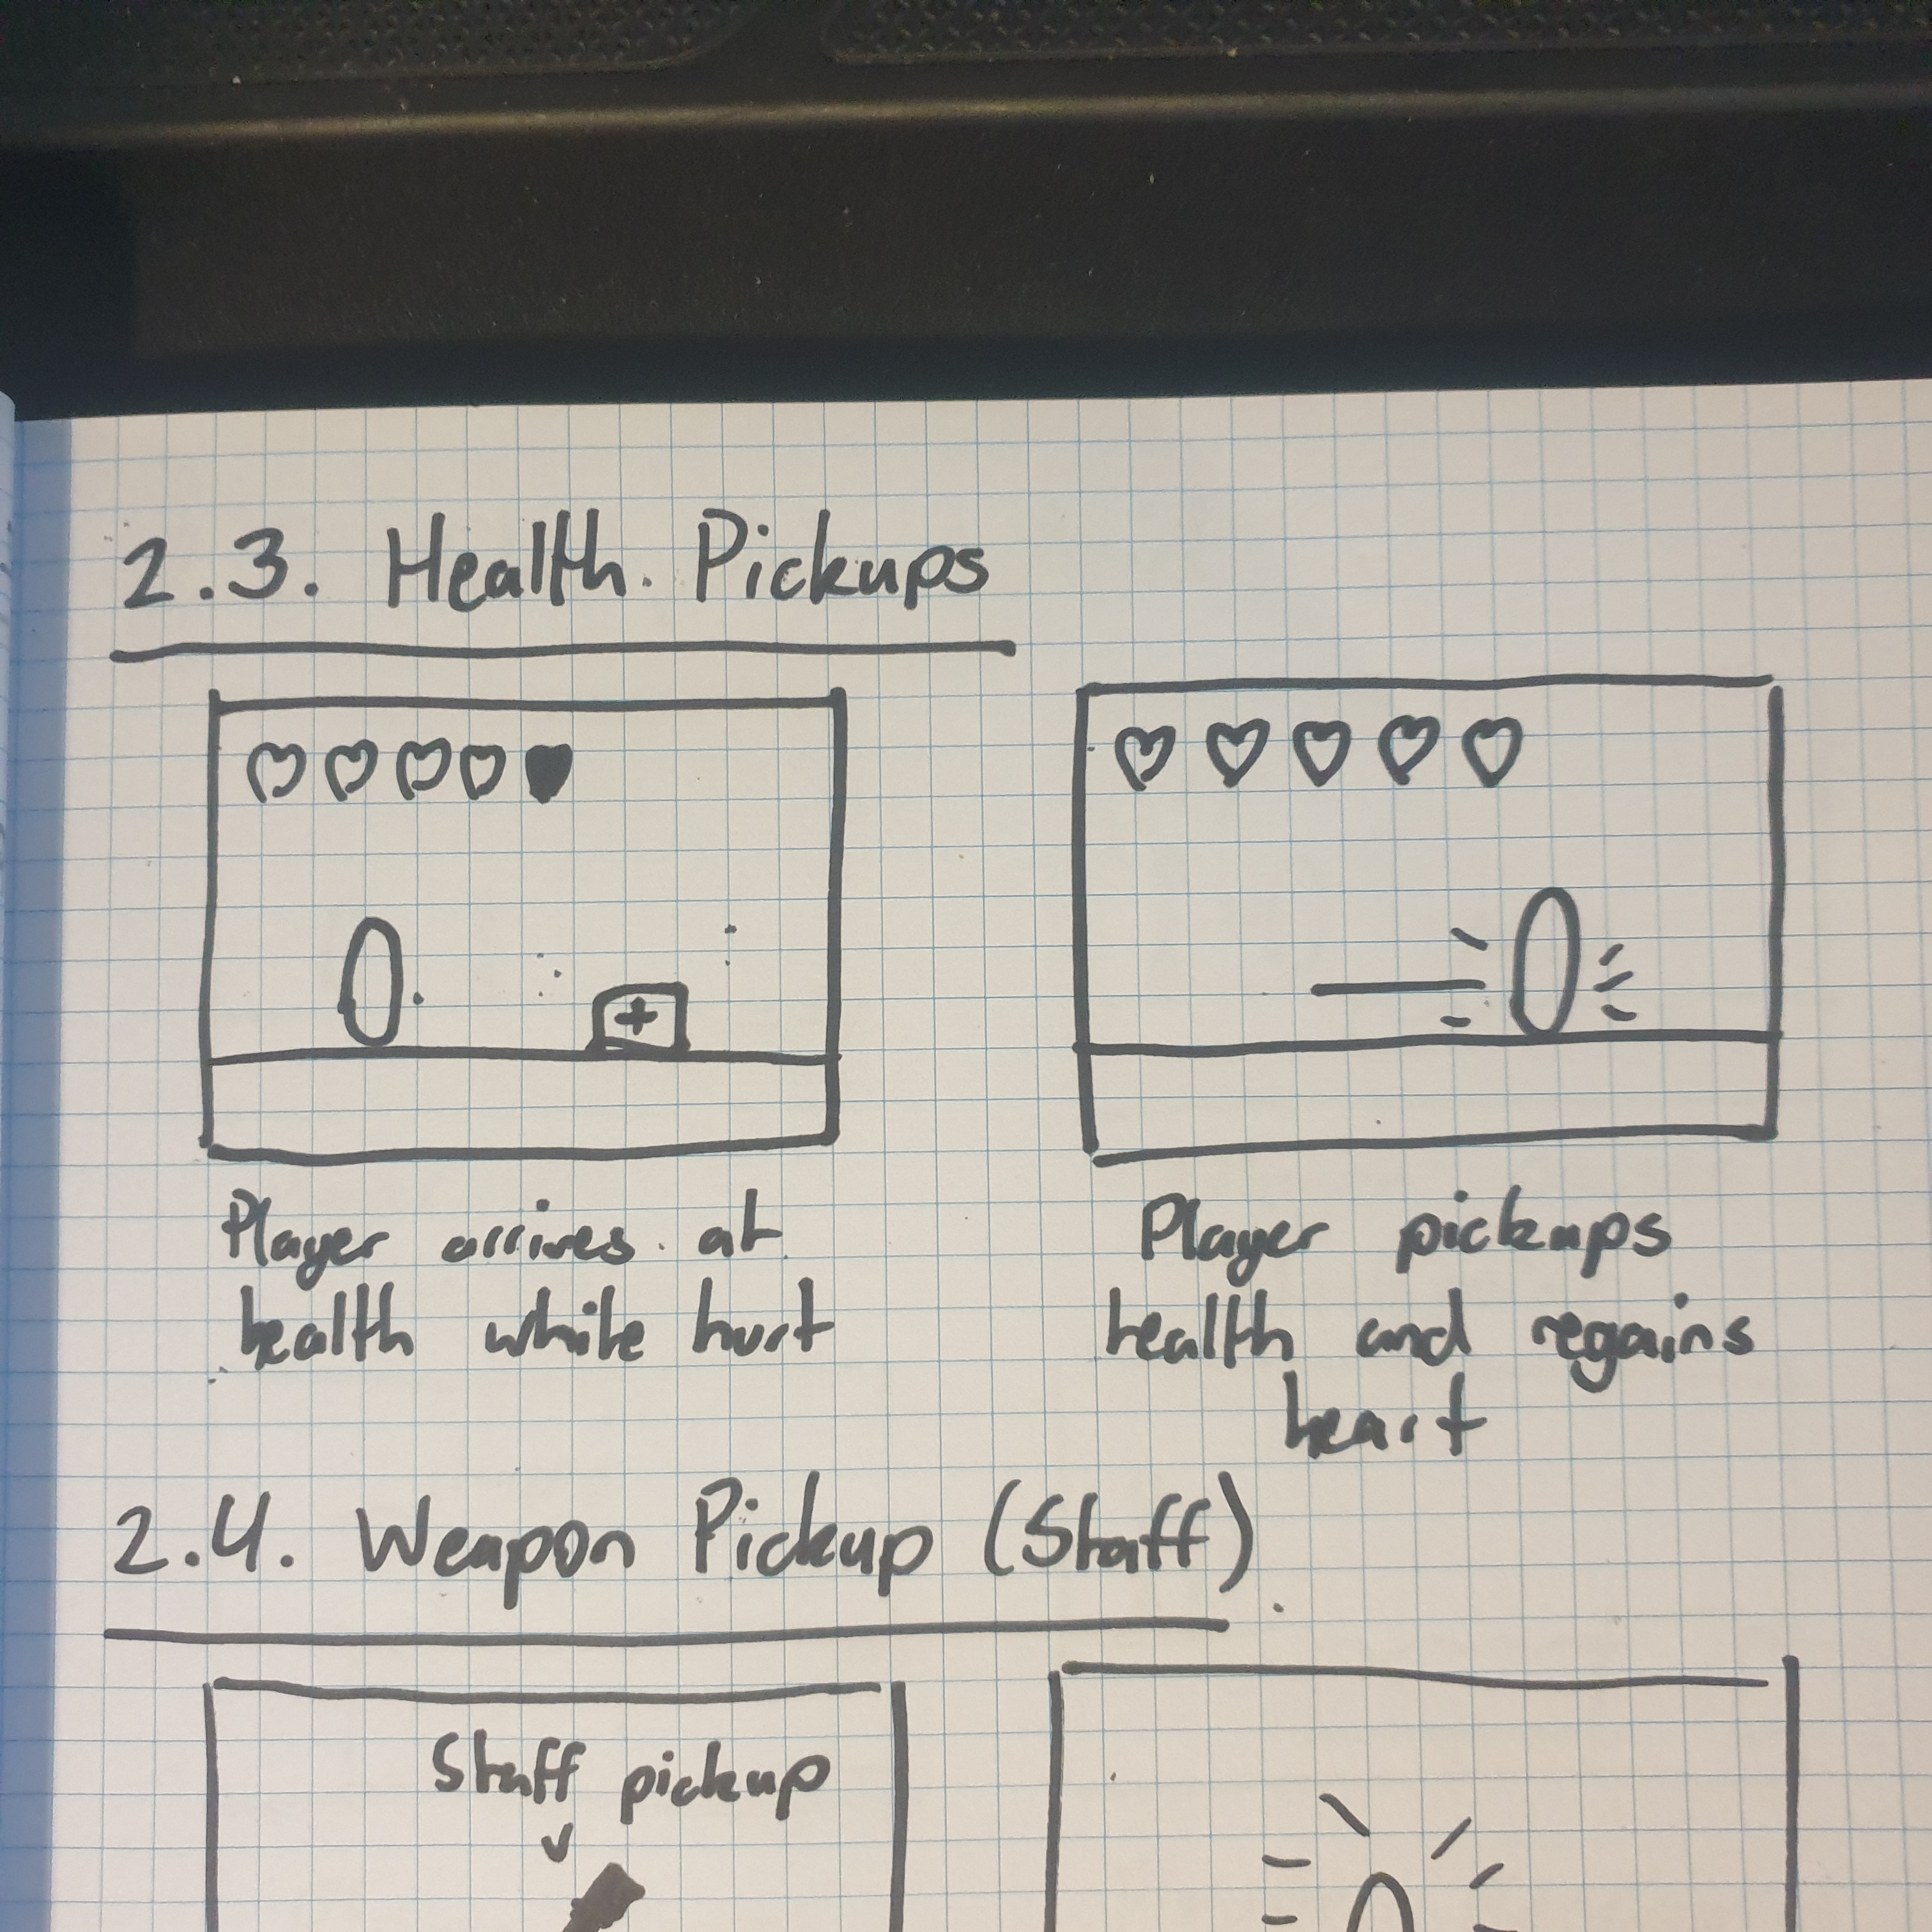 2.3. Health. Pickups
Player arrives. at
health while hurt
Player pickups
health and regains
heart
2.4. Weapon Pickup (Staff)
Staff pickup